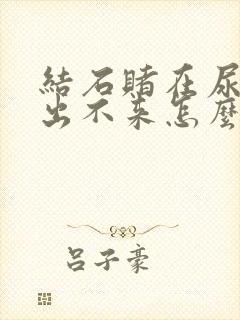 結石賭在尿
出不來怎麼
呂子豪